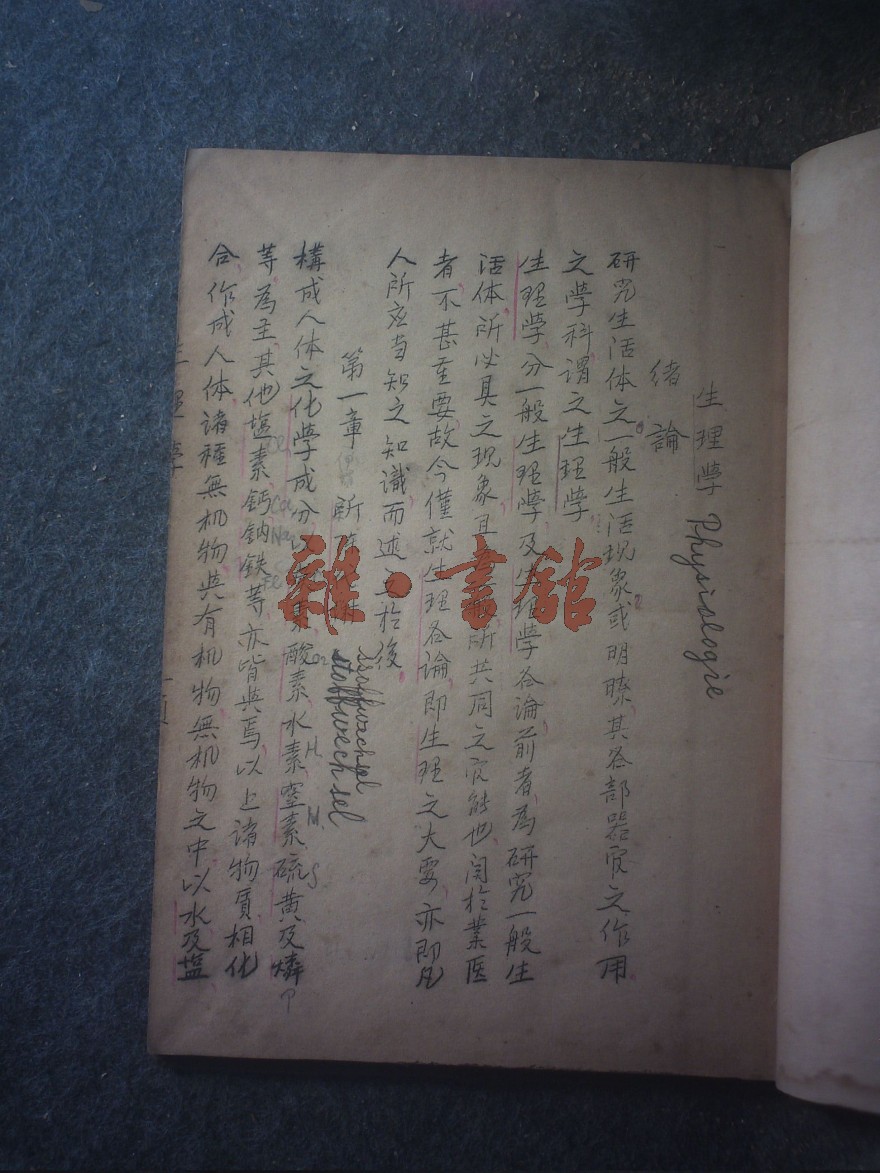 生理學 Physiologie
緒論
研究生活体之一般生活現象或明瞭其各部器官之作用
之學科謂之生理學
生理學分一般生理學及生理學各論前者為研究一般生
活体所必具之現象且 所共同之官能也関於業医
者不甚重要故今僅就生理各論即生理之大要亦即凡
人所应当知之知識而述之於後
第一章 新陳 stoffwechsel
stoffwechsel
構成人体之化學成分以 素酸素水素窒素硫黄及燐
O2 H. N. S P
等為主其他塩素鈣鈉鉄等亦皆與焉以上諸物質相化
Cl Ca Na Fe
合作成人体諸種無机物與有机物無机物之中以水及塩
生理學 一頁
雜·書館